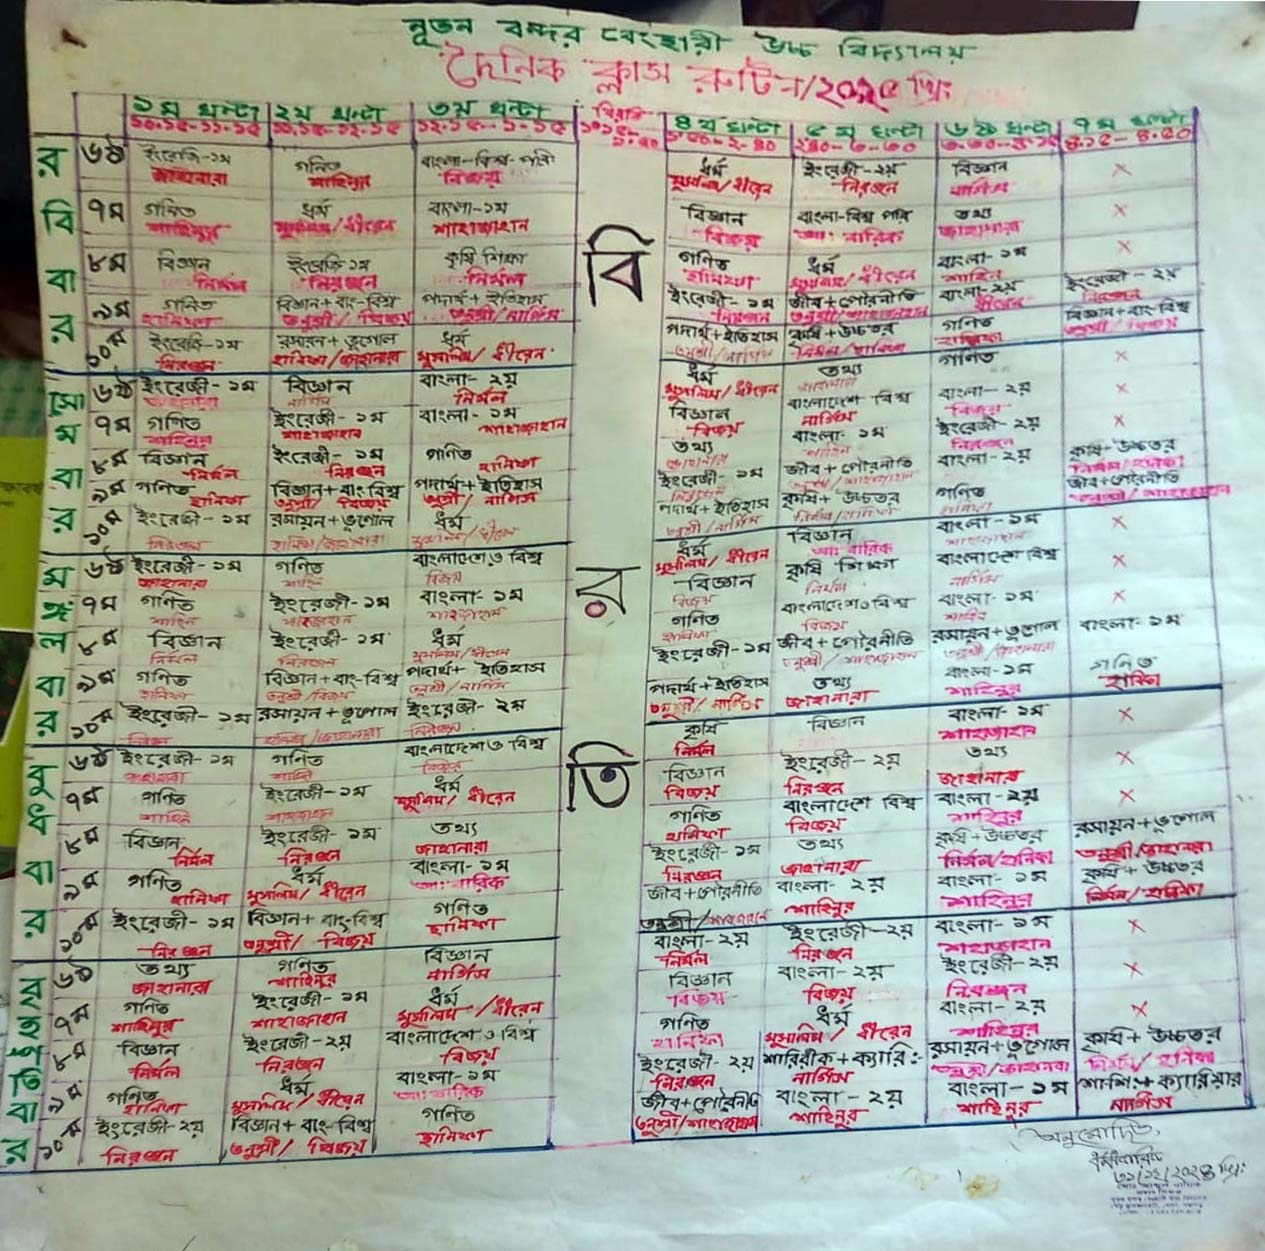 নূতন বন্দর বেংহারী উচ্চ বিদ্যালয়
দৈনিক ক্লাস রুটিন/২০২৫ খ্রিঃ
১ম ঘন্টা ২য় ঘন্টা ৩য় ঘন্টা বিরতি ৪র্থ ঘন্টা ৫ম ঘন্টা ৬ষ্ঠ ঘন্টা ৭ম ঘন্টা
১০.১৫-১১.১৫ ১১.১৫-১২.১৫ ১২.১৫-১.১৫
রবিবার
৬ষ্ঠ ইংরেজি-১ম গণিত বাংলা-বিশ্ব-পরি ধর্ম ইংরেজী-২য় বিজ্ঞান ×
জাহানারা শাহিনুর বিজয় মুসলিম/ধীরেন নিরঞ্জন নার্গিস
৭ম গণিত ধর্ম বাংলা-১ম বিজ্ঞান বাংলা-বিশ্ব পরি তথ্য ×
শাহিনুর মুসলিম/ধীরেন শাহাজাহান বিজয় আঃ বারিক জাহানারা
৮ম বিজ্ঞান ইংরেজি-১ম কৃষি শিক্ষা গণিত ধর্ম বাংলা-১ম ×
নির্মল নিরঞ্জন নির্মল হানিফা মুসলিম/ধীরেন শাহিন
৯ম গণিত বিজ্ঞান+বাং-বিশ্ব পদার্থ+ইতিহাস ইংরেজী-১ম জীব+পৌরনীতি বাংলা-২য় ইংরেজী-২য়
হানিফা তনুশ্রী/বিজয় তনুশ্রী/নার্গিস নিরঞ্জন তনুশ্রী/শাহাজাহান ধীরেন নিরঞ্জন
১০ম ইংরেজি-১ম রসায়ন+ভূগোল ধর্ম পদার্থ+ইতিহাস কৃষি+উচ্চতর গণিত বিজ্ঞান+বাং-বিশ্ব
নিরঞ্জন হানিফা/জাহানারা মুসলিম/ধীরেন তনুশ্রী/নার্গিস নির্মল/হানিফা হানিফা তনুশ্রী/বিজয়
সোমবার
৬ষ্ঠ ইংরেজী-১ম বিজ্ঞান বাংলা-২য় ধর্ম তথ্য গণিত ×
জাহানারা নার্গিস নির্মল মুসলিম/ধীরেন জাহানারা
৭ম গণিত ইংরেজী-১ম বাংলা-১ম বিজ্ঞান বাংলাদেশ বিশ্ব বাংলা-২য় ×
শাহিনুর শাহাজাহান শাহাজাহান বিজয় নার্গিস বিজয়
৮ম বিজ্ঞান ইংরেজী-১ম গণিত তথ্য বাংলা-১ম ইংরেজী-২য় ×
নির্মল নিরঞ্জন হানিফা জাহানারা শাহিন নিরঞ্জন
৯ম গণিত বিজ্ঞান+বাং-বিশ্ব পদার্থ+ইতিহাস ইংরেজী-১ম জীব+পৌরনীতি বাংলা-২য় কৃষি-উচ্চতর
হানিফা তনুশ্রী/বিজয় তনুশ্রী/নার্গিস নিরঞ্জন তনুশ্রী/শাহাজাহান নির্মল/হানিফা
১০ম ইংরেজী-১ম রসায়ন+ভূগোল ধর্ম পদার্থ+ইতিহাস কৃষি+উচ্চতর গণিত জীব+পৌরনীতি
নিরঞ্জন হানিফা/জাহানারা মুসলিম/ধীরেন তনুশ্রী/নার্গিস নির্মল/হানিফা হানিফা তনুশ্রী/শাহাজাহান
মঙ্গলবার
৬ষ্ঠ ইংরেজী-১ম গণিত বাংলাদেশ ও বিশ্ব ধর্ম বিজ্ঞান বাংলা-১ম ×
জাহানারা শাহিন বিজয় মুসলিম/ধীরেন আঃ বারিক শাহাজাহান
৭ম গণিত ইংরেজী-১ম বাংলা-১ম বিজ্ঞান কৃষি শিক্ষা বাংলাদেশ বিশ্ব ×
শাহিন শাহাজাহান শাহাজাহান বিজয় নির্মল নার্গিস
৮ম বিজ্ঞান ইংরেজী-১ম ধর্ম গণিত বাংলাদেশ ও বিশ্ব বাংলা-১ম ×
নির্মল নিরঞ্জন মুসলিম/ধীরেন হানিফা বিজয় শাহিন
৯ম গণিত বিজ্ঞান+বাং-বিশ্ব পদার্থ+ইতিহাস ইংরেজী-১ম জীব+পৌরনীতি রসায়ন+ভূগোল বাংলা-১ম
হানিফা তনুশ্রী/বিজয় তনুশ্রী/নার্গিস তনুশ্রী/শাহাজাহান তনুশ্রী/জাহানারা
১০ম ইংরেজী-১ম রসায়ন+ভূগোল ইংরেজী-২ম পদার্থ+ইতিহাস তথ্য বাংলা-১ম গণিত
হানিফা/জাহানারা নিরঞ্জন তনুশ্রী/নার্গিস জাহানারা শাহিনুর হানিফা
বুধবার
৬ষ্ঠ ইংরেজী-১ম গণিত বাংলাদেশ ও বিশ্ব কৃষি বিজ্ঞান বাংলা-১ম ×
জাহানারা শাহিন বিজয় নির্মল শাহাজাহান
৭ম গণিত ইংরেজী-১ম ধর্ম বিজ্ঞান ইংরেজী-২য় তথ্য ×
শাহিন শাহাজাহান মুসলিম/ধীরেন বিজয় নিরঞ্জন জাহানারা
৮ম বিজ্ঞান ইংরেজী-১ম তথ্য গণিত বাংলাদেশ বিশ্ব বাংলা-২য় ×
নির্মল নিরঞ্জন জাহানারা হানিফা বিজয় শাহিনুর
৯ম গণিত ধর্ম বাংলা-১ম ইংরেজী-১ম তথ্য কৃষি+উচ্চতর রসায়ন+ভূগোল
হানিফা মুসলিম/ধীরেন আঃ বারিক নিরঞ্জন জাহানারা নির্মল/হানিফা তনুশ্রী/জাহানারা
১০ম ইংরেজী-১ম বিজ্ঞান+বাং-বিশ্ব গণিত জীব+পৌরনীতি বাংলা-২য় বাংলা-১ম কৃষি+উচ্চতর
নিরঞ্জন তনুশ্রী/বিজয় হানিফা তনুশ্রী/শাহাজাহান শাহিনুর শাহিনুর নির্মল/হানিফা
বৃহস্পতিবার
৬ষ্ঠ তথ্য গণিত বিজ্ঞান বাংলা-২য় ইংরেজী-২য় বাংলা-১ম ×
জাহানারা শাহিনুর নার্গিস নির্মল নিরঞ্জন শাহাজাহান
৭ম গণিত ইংরেজী-১ম ধর্ম বিজ্ঞান বাংলা-২য় ইংরেজী-২য় ×
শাহিনুর শাহাজাহান মুসলিম/ধীরেন বিজয় বিজয় নিরঞ্জন
৮ম বিজ্ঞান ইংরেজী-২য় বাংলাদেশ ও বিশ্ব গণিত ধর্ম বাংলা-২য় ×
নির্মল নিরঞ্জন বিজয় হানিফা মুসলিম/ধীরেন শাহিনুর
৯ম গণিত ধর্ম বাংলা-১ম ইংরেজী-২য় শারিরীক+ক্যারিঃ- রসায়ন+ভূগোল কৃষি+উচ্চতর
হানিফা মুসলিম/ধীরেন আঃ বারিক নিরঞ্জন নার্গিস তনুশ্রী/জাহানারা নির্মল/হানিফা
১০ম ইংরেজী-২য় বিজ্ঞান+বাং-বিশ্ব গণিত জীব+পৌরনীতি বাংলা-২য় বাংলা-১ম শাশি+ক্যারিয়ার
নিরঞ্জন তনুশ্রী/বিজয় হানিফা তনুশ্রী/শাহাজাহান শাহিনুর শাহিনুর নার্গিস
বিরতি
অনুমোদিত,
৩১/১২/২০২৪ খ্রিঃ